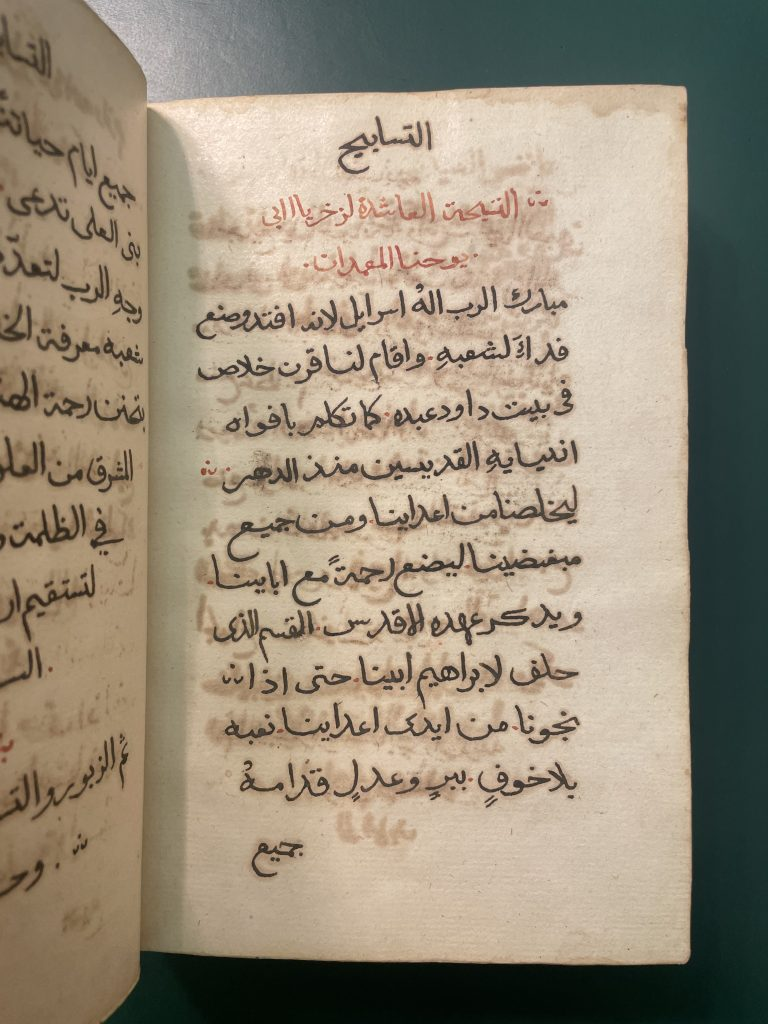 التسابيح
التسبحة العاشرة لزخريا ابي
يوحنا المعمدان
مبارك الرب اله اسرايل لانه افتقد وصنع
فداءً لشعبهِ. واقام لنا قرن خلاص
في بيت داود عبده. كما تكلم بافواه
انبيايهِ القديسين منذ الدهر.
ليخلصنا من اعداينا ومن جميع
مبغضينا ليصنع رحمةً مع ابايينا.
ويذكر عهده الاقدس. القسم الذى
حلف لابراهيم ابينا. حتى اذا
نجونا. من ايدى اعداينا. نعبه
بلا خوفٍ. ببرٍ وعدلٍ قدامهُ
جميع
التسا
جميع ايام حياتنا
بنى العلى تدعى.
وجهِ الرب لتعد
شعبه معرفة الخ
بتحنن رحمة الهنا
المشرق من العلو
في الظلمة و
لتستقيم ار
الس
ثم الزبور والتس
وح